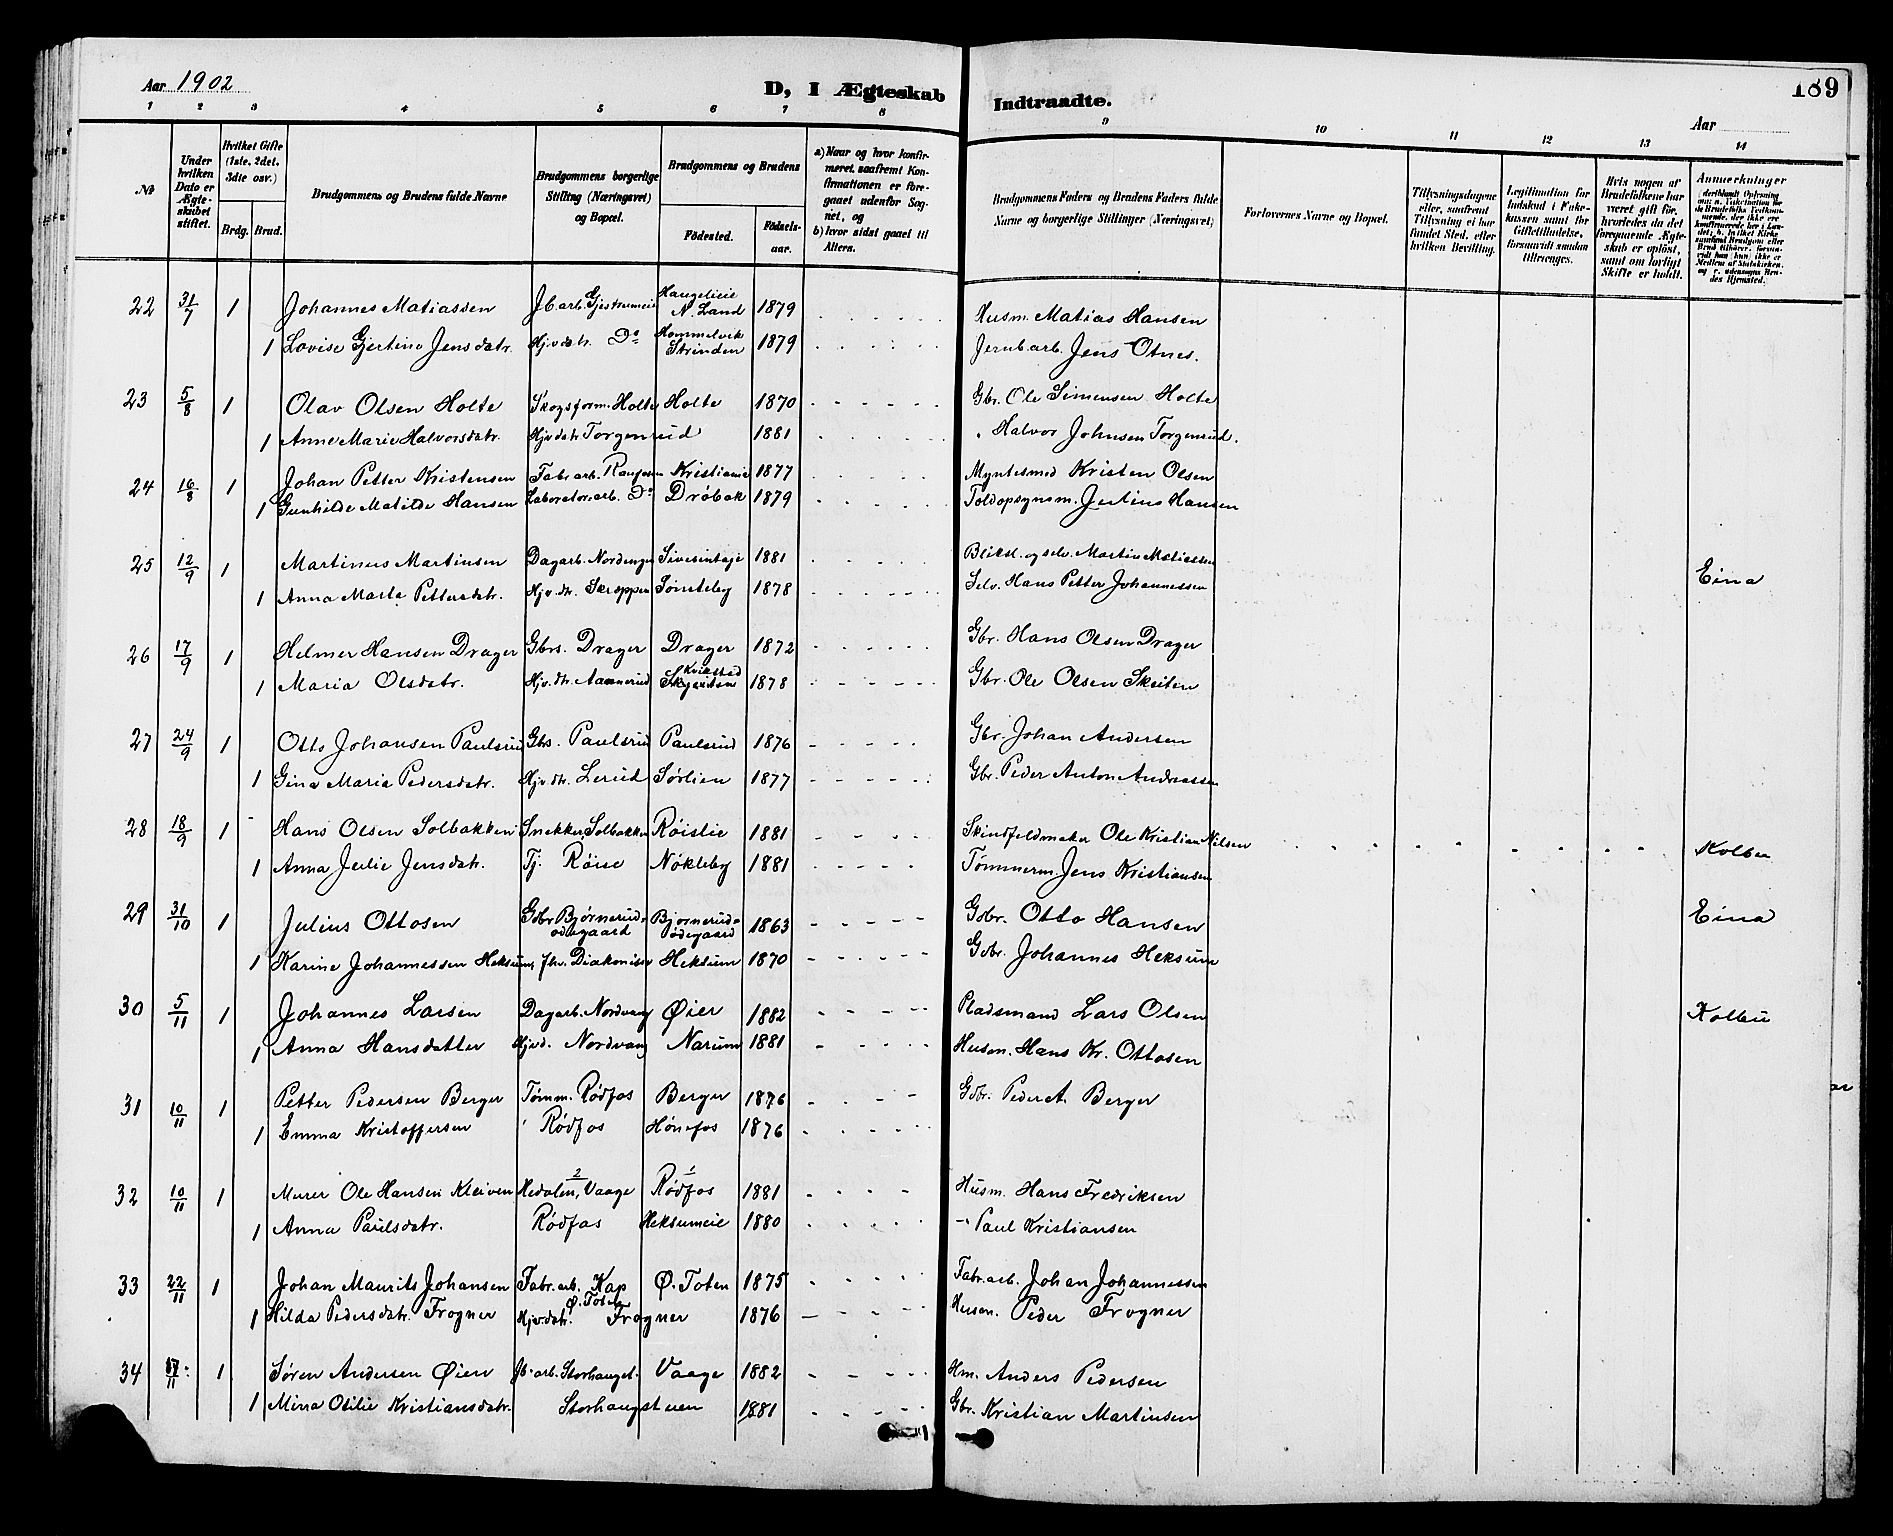 Aar 1902
D, I Ægteskab Indtraadte.
189
Aar
1 2 3 4 5 6 7 8 9 10 11 12 13 14
No
Under hvilken Dato er Ægteskabet stiftet.
Hvilket Gifte (1ste, 2det, 3die osv.)
Brdg. Brud.
Brudgommens og Brudens fulde Navne
Brudgommens borgerlige Stilling (Næringsvei) og Bopæl.
Brudgommens og Brudens
Fødested.
Fødselsaar.
a) Naar og hvor konfirmeret, saafremt Konfirmationen er foregaaet udenfor Sognet, og
b) hvor sidst gaaet til Alters.
Brudgommens Faders og Brudens Faders fulde Navne og borgerlige Stillinger (Næringsvei)
Forlovernes Navne og Bopæl.
Tillysningsdagene eller, saafremt Tillysning ei har fundet Sted, efter hvilken Bevilling.
Legitimation for Indskud i Enkekassen samt for Giftetilladelse, forsaavidt saadan tiltrænges.
Hvis nogen af Brudefolkene har været gift før, hvorledes da det foregaaende Ægteskab er opløst, samt om lovligt Skifte er holdt.
Anmærkninger
22 31/7 1 Johannes Matiassen Jb.arb. Gjestrumeie Haugelieie N. Land 1879 Husm. Matias Hansen
1 Lovise Gjertine Jensdatr. Hjv.datr. Do Hommelvik Strinden 1879 Jernb.arb. Jens Otnes.
23 5/8 1 Olav Olsen Holte Skogsform. Holte Holte 1870 Gbr. Ole Simensen Holte
1 Anne Marie Halvorsdatr. Hjv.datr Torgenrud 1881 " Halvor Johnsen Torgenrud.
24 16/8 1 Johan Petter Kristensen Fabr.arb. Raufossen Kristiania 1877 Myntesmed Kristen Olsen
1 Gunhilde Matilde Hansen Laboratoriearb. Do Drøbak 1879 Toldopsynsm. Julius Hansen
25 12/9 1 Martinus Martinsen Dagarb. Nordengen Sivesintaje 1881 Bliksl. og selv. Martin Matiassen Eina
1 Anna Marte Pettersdatr. Hjv.dtr. Skroppen Sønsteby 1878 Selv. Hans Petter Johannessen
26 17/9 1 Helmer Hansen Drager Gbrs. Drager Drager 1872 Gbr. Hans Olsen Drager
1 Maria Olsdatr. Hjv.dtr. Aannerud Kvikstad Skjeiten 1878 Gbr. Ole Olsen Skeiten
27 24/9 1 Otto Johansen Paulsrud Gbs. Paulsrud Paulsrud 1876 Gbr. Johan Andersen
1 Gina Maria Pedersdatr. Hjv.dtr. Lerud Sørlien 1877 Gbr. Peder Anton Andreassen
28 18/9 1 Hans Olsen Solbakken Snekker, Solbakken Røislie 1881 Skindfeldmaker Ole Kristian Nilsen Kolbu
1 Anna Julie Jensdatr. Tj. Røise Nøkleby 1881 Tømmerm. Jens Kristiansen
29 31/10 1 Julius Ottosen Gbr Bjørnerudødegaard Bjørnerudødegaard 1863 Gdbr. Otto Hansen Eina
1 Karine Johannessen Heksum fhv. Diakonisse Heksum 1870 Gdbr. Johannes Heksum
30 5/11 1 Johannes Larsen Dagarb. Nordvang Øier 1882 Pladsmand Lars Olsen Kolbu
1 Anna Hansdatter Hjvd. Nordvang Narum 1881 Husm. Hans Kr. Ottosen
31 10/11 1 Petter Pedersen Berger Tømm. Rødfos Berger 1876 Gdbr. Peder A. Berger
1 Emma Kristoffersen " Rødfos Hønefos 1876
32 10/11 1 Murer Ole Hansen Kleiven 2 Hedalen, Vaage 1 Rødfos 1881 Husm. Hans Fredriksen
1 Anna Paulsdatr. Rødfos Heksumeie 1880 -" Paul Kristiansen
33 22/11 1 Johan Maurits Johansen Fabr.arb. Kap Ø. Toten Ø. Toten 1875 Fabr.arb. Johan Johannessen
1 Hilda Pedersdatr. Frogner Hjv.datr. Frogner 1876 Husm. Peder Frogner
34 17/11 1 Søren Andersen Øien Jb.arb. Storhauget. Vaage 1882 Hm. Anders Pedersen
1 Mina Otilie Kristiansdatr. Storhaugstuen 1881 Gbr. Kristian Martinsen